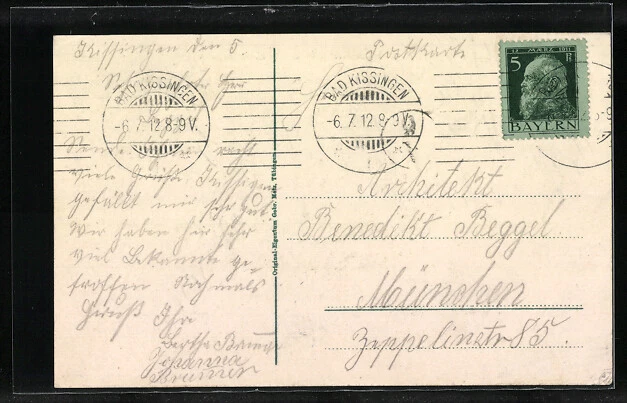 Kissingen den 5.
Sehr Herr
BAD KISSINGEN
-6.7.12.8-9V.
Sende recht
viele Grüße Kissingen
gefällt mir sehr gut.
Wir haben hir sehr
viel Bekannte ge-
troffen Nochmals
Gruß Ihr
Bertha
Johanna
Brunner
Original-Eigentum Gebr. Metz, Tübingen
Postkarte
BAD KISSINGEN
-6.7.12.8-9V.
12. MÄRZ 1911
5 Pf
BAYERN
Architekt
Benedikt Beggel.
München
Zeppelinstr 85.